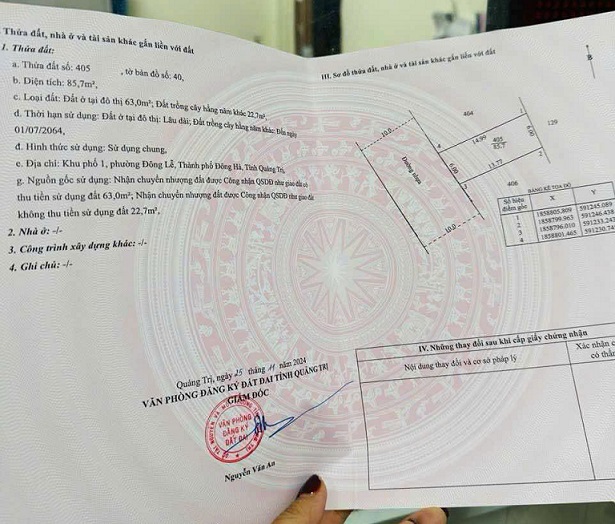 Thửa đất, nhà ở và tài sản khác gắn liền với đất
1. Thửa đất:
a. Thửa đất số: 405 , tờ bản đồ số: 40,
b. Diện tích: 85,7m²,
c. Loại đất: Đất ở tại đô thị 63,0m²; Đất trồng cây hằng năm khác 22,7m²,
d. Thời hạn sử dụng: Đất ở tại đô thị: Lâu dài; Đất trồng cây hằng năm khác: Đến ngày
01/07/2064,
đ. Hình thức sử dụng: Sử dụng chung,
e. Địa chỉ: Khu phố 1, phường Đông Lễ, Thành phố Đông Hà, Tỉnh Quảng Trị,
g. Nguồn gốc sử dụng: Nhận chuyển nhượng đất được Công nhận QSDĐ như giao đất có
thu tiền sử dụng đất 63,0m²; Nhận chuyển nhượng đất được Công nhận QSDĐ như giao đất
không thu tiền sử dụng đất 22,7m²,
2. Nhà ở: -/-
3. Công trình xây dựng khác: -/-
4. Ghi chú: -/-
Quảng Trị, ngày 25 tháng 11 năm 2024
VĂN PHÒNG ĐĂNG KÝ ĐẤT ĐAI TỈNH QUẢNG TRỊ
GIÁM ĐỐC
VĂN PHÒNG
ĐĂNG KÝ
ĐẤT ĐAI
Nguyễn Văn An
III. Sơ đồ thửa đất, nhà ở và tài sản khác gắn liền với đất
B
404
129
10.0
4
14.99
1
405
85.7
6.00
Đường nhựa
6.00
3
13.77
2
406
10.0
BẢNG KÊ TỌA ĐỘ
Số hiệu điểm góc X Y
1 1858805.809 591245.089
2 1858799.963 591246.438
3 1858796.010 591233.242
4 1858801.465 591230.74
IV. Những thay đổi sau khi cấp giấy chứng nhận
Nội dung thay đổi và cơ sở pháp lý
Xác nhận c
có thẩm